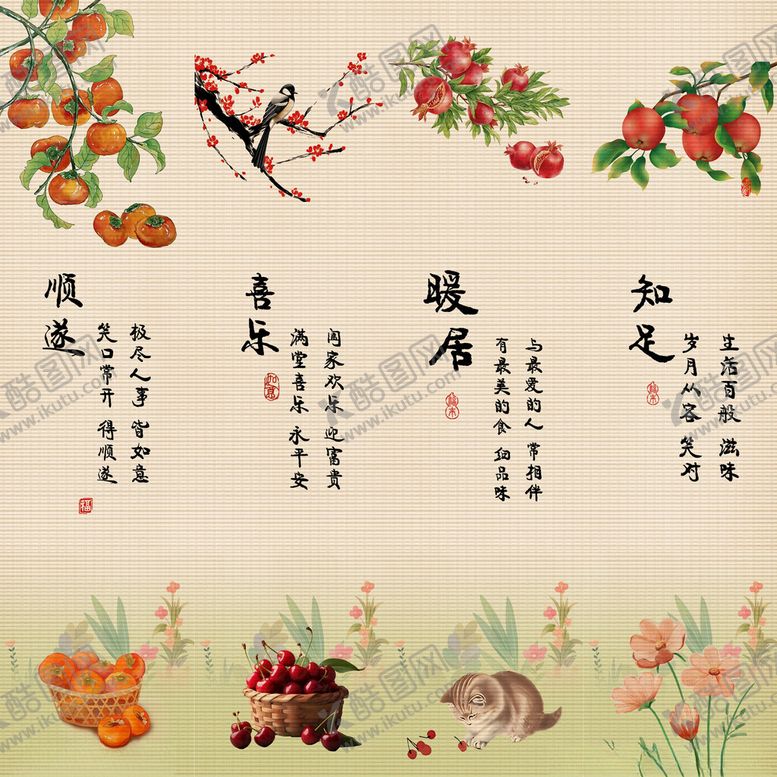 顺遂
极尽人事 皆如意
笑口常开 得顺遂
福
喜乐
阖家欢乐 迎富贵
满堂喜乐 永平安
如意
暖居
与最爱的人 常相伴
有最美的食 细品味
知足
生活百般 滋味
岁月从容 笑对
酷图网
www.ikutu.com